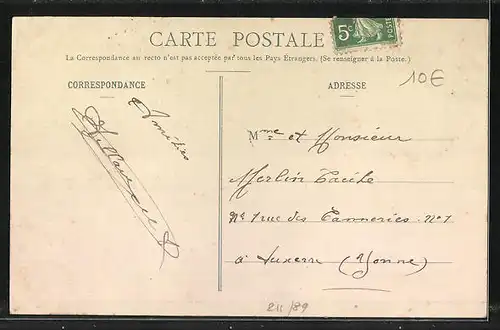 CARTE POSTALE
La Correspondance au recto n'est pas acceptée par tous les Pays Étrangers. (Se renseigner à la Poste.)
5c
10€
CORRESPONDANCE
Amitiés
ADRESSE
Mme et Monsieur
Merlin
rue des Tanneries N°1
à Auxerre (Yonne)
211/89